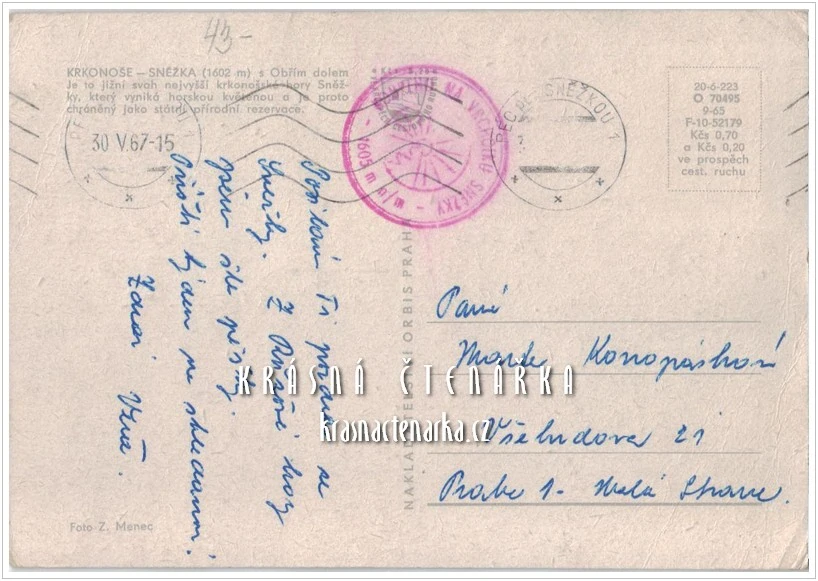 43-
KRKONOŠE — SNĚŽKA (1602 m) s Obřím dolem
Je to jižní svah nejvyšší krkonošské hory Sněž-
ky, který vyniká horskou květenou a je proto
chráněný jako státní přírodní rezervace.
30 V.67-15
NA VRCHOLKU SNĚŽKY - 1605 m n/m -
PEC POD SNĚŽKOU 1
20-6-223
O 70495
9-65
F-10-52179
Kčs 0,70
a Kčs 0,20
ve prospěch
cest. ruchu
Posílám Ti pozdrav se
Sněžky. Z Růžové hory
jsem šla pěšky.
Příští týden na shledanou!
Zdraví Věra.
NAKLADATELSTVÍ ORBIS PRAHA
Paní
Konopásková
Všehrdova 21
Praha 1 - Malá Strana.
KRÁSNÁ ČTENÁŘKA
krasnactenarka.cz
Foto Z. Menec